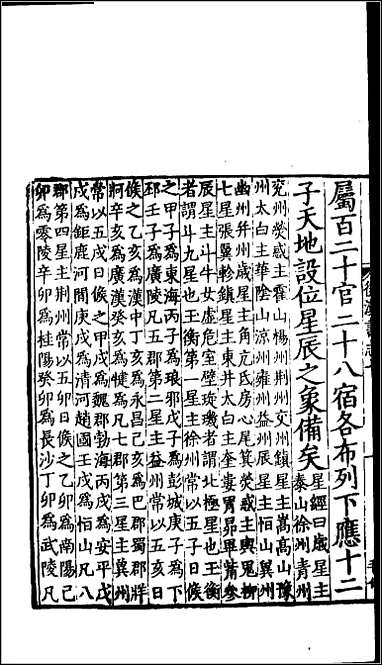 屬百二十官二十八宿各布列下應十二
子天地設位星辰之象備矣
星經曰歲星主
泰山徐州青州
兗州熒惑主霍山楊州荆州交州鎮星主嵩高山豫
州太白主華陰山涼州雍州益州辰星主恒山冀州
幽州并州歲星主角亢氐房心尾箕熒惑主輿鬼柳
七星張翼軫鎮星主東井太白主奎婁胃昴畢觜參
辰星主斗牛女虛危室壁璇璣者謂北極星也玉衡
者謂斗九星也玉衡第一星主徐州常以五子日候
之甲子爲東海丙子爲琅邪戊子爲彭城庚子爲下
邳壬子爲廣陵凡五郡第二星主益州常以五亥日
候之乙亥爲漢中丁亥爲永昌己亥爲巴郡蜀郡牂
牁辛亥爲廣漢癸亥爲犍爲凡七郡第三星主冀州
常以五戌日候之甲戌爲魏郡勃海丙戌爲安平戊
戌爲鉅鹿河間庚戌爲清河趙國壬戌爲恒山凡八
郡第四星主荆州常以五卯日候之乙卯爲南陽己
卯爲零陵辛卯爲桂陽癸卯爲長沙丁卯爲武陵凡